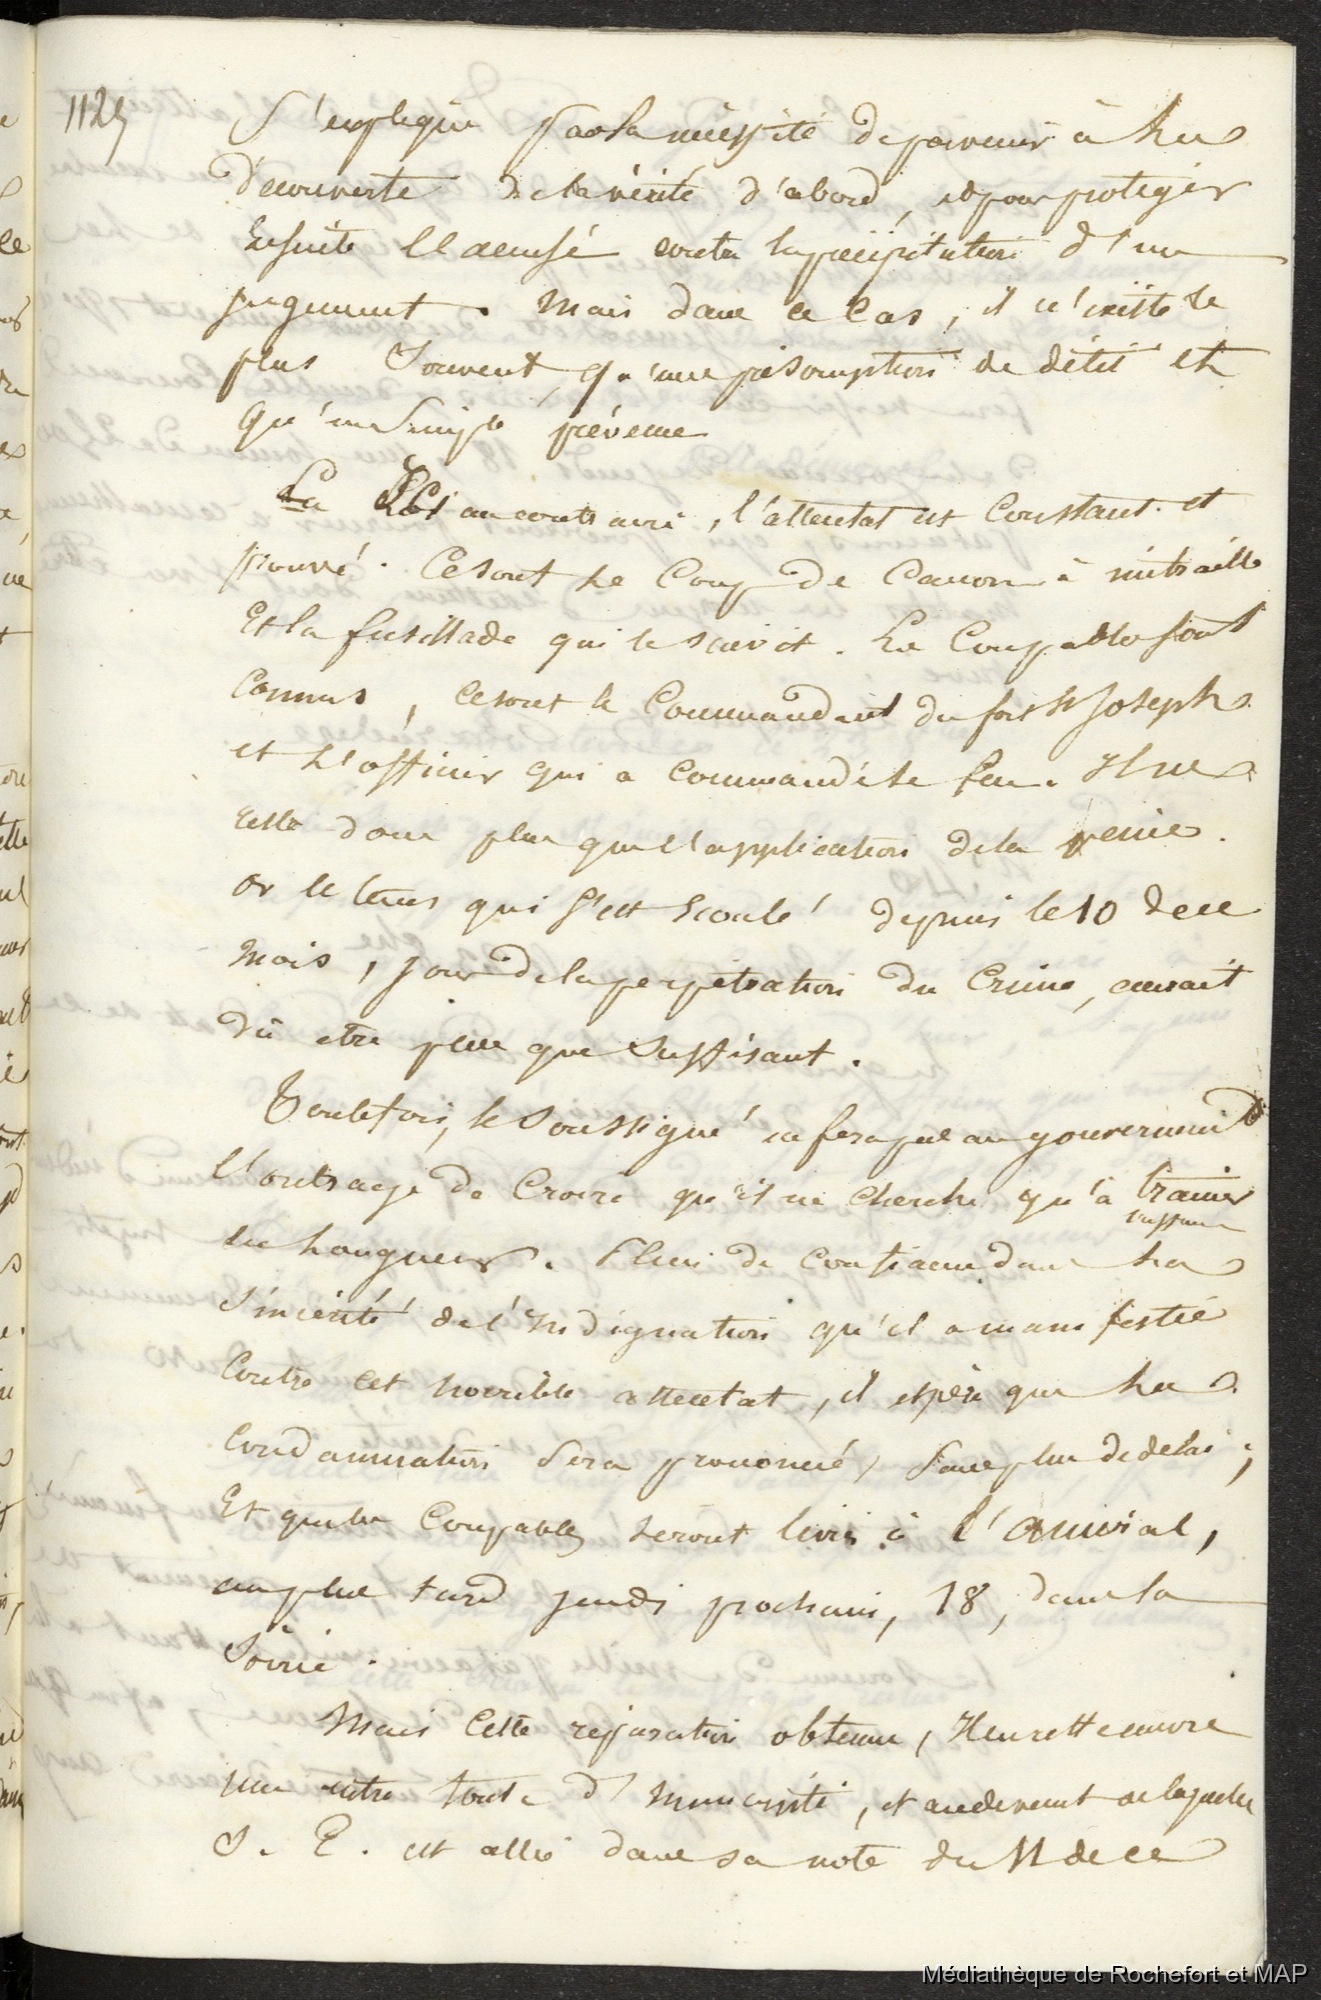 1125
S'explique par la nécessité de parvenir à la
Découverte de la vérité d'abord, et pour protéger
Ensuite l'accusé contre la précipitation d'un
jugement. Mais dans ce Cas, il n'existe le
plus Souvent, qu'une présomption de délit et
Qu'un Simple prévenu
Ici au contraire, l'attentat est Constant et
prouvé. Ce sont le Coup de Canon à mitraille
Et la fusillade qui le suivit. Les Coupables sont
Connus, ce sont le Commandant du fort St Joseph
et l'officier qui a commandé le feu. Il ne
reste donc plus que l'application de la peine.
or le tems qui s'est écoulé depuis le 10 de ce
Mois, jour de la perpétration du Crime, aurait
dû etre plus que Suffisant.
Toutefois, le Soussigné ne fera pas au gouvernement
l'outrage de Croire qu'il ne cherche qu'à trainer
l'affaire
en longueur. Plein de Confiance dans la
Sincérité de l'Indignation qu'il a manifestée
Contre cet horrible attentat, il espère que la
Condamnation Sera prononcée, Sans plus de délai;
Et que les Coupables seront livrés à l'Amiral,
au plus tard jeudi prochain, 18, dans la
Soirée.
Mais Cette réparation obtenue, Il en reste encore
une autre toute d'humanité, et au devant de laquelle
S. E. est allée dans sa note du 11 de ce
Médiathèque de Rochefort et MAP